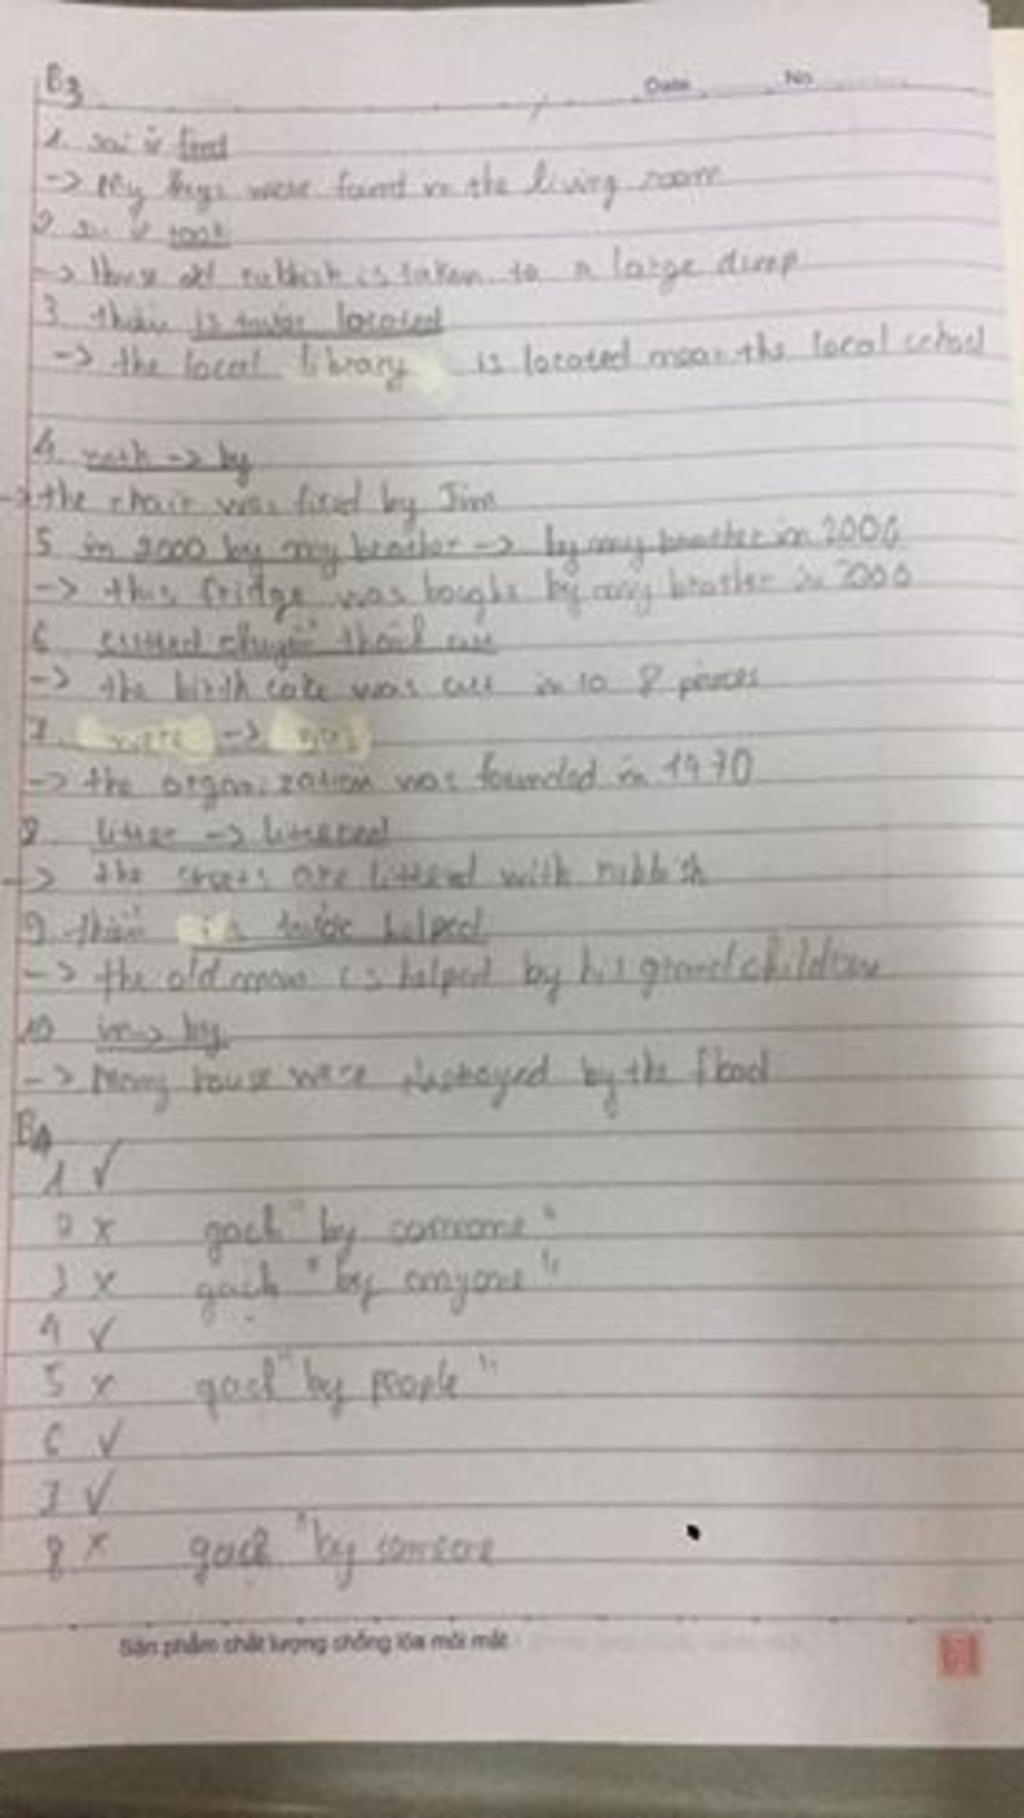 B3
Date No
1. sai ở find
-> My keys were found in the living room
2 sai ở took
-> House old rubbish is taken to a large dump
3 thêm is trước located
-> the local library is located near the local school
4 with -> by
-> the chair was fixed by Jim
5 in 2000 by my brother -> by my brother in 2000
-> this fridge was bought by my brother in 2000
6 cutted chuyển thành cut
-> the birth cake was cut in to 8 pieces
7. were -> was
-> the organization was founded in 1970
8. litter -> littered
-> the streets are littered with rubbish
9 thêm is trước helped
-> the old man is helped by his grandchildren
10 in -> by
-> Many house were destroyed by the flood
B4
1 ✓
2 x gạch "by someone"
3 x gạch "by anyone"
4 ✓
5 x gạch "by people"
6 ✓
7 ✓
8 x gạch "by someone
Sản phẩm chất lượng chống lóa mỏi mắt